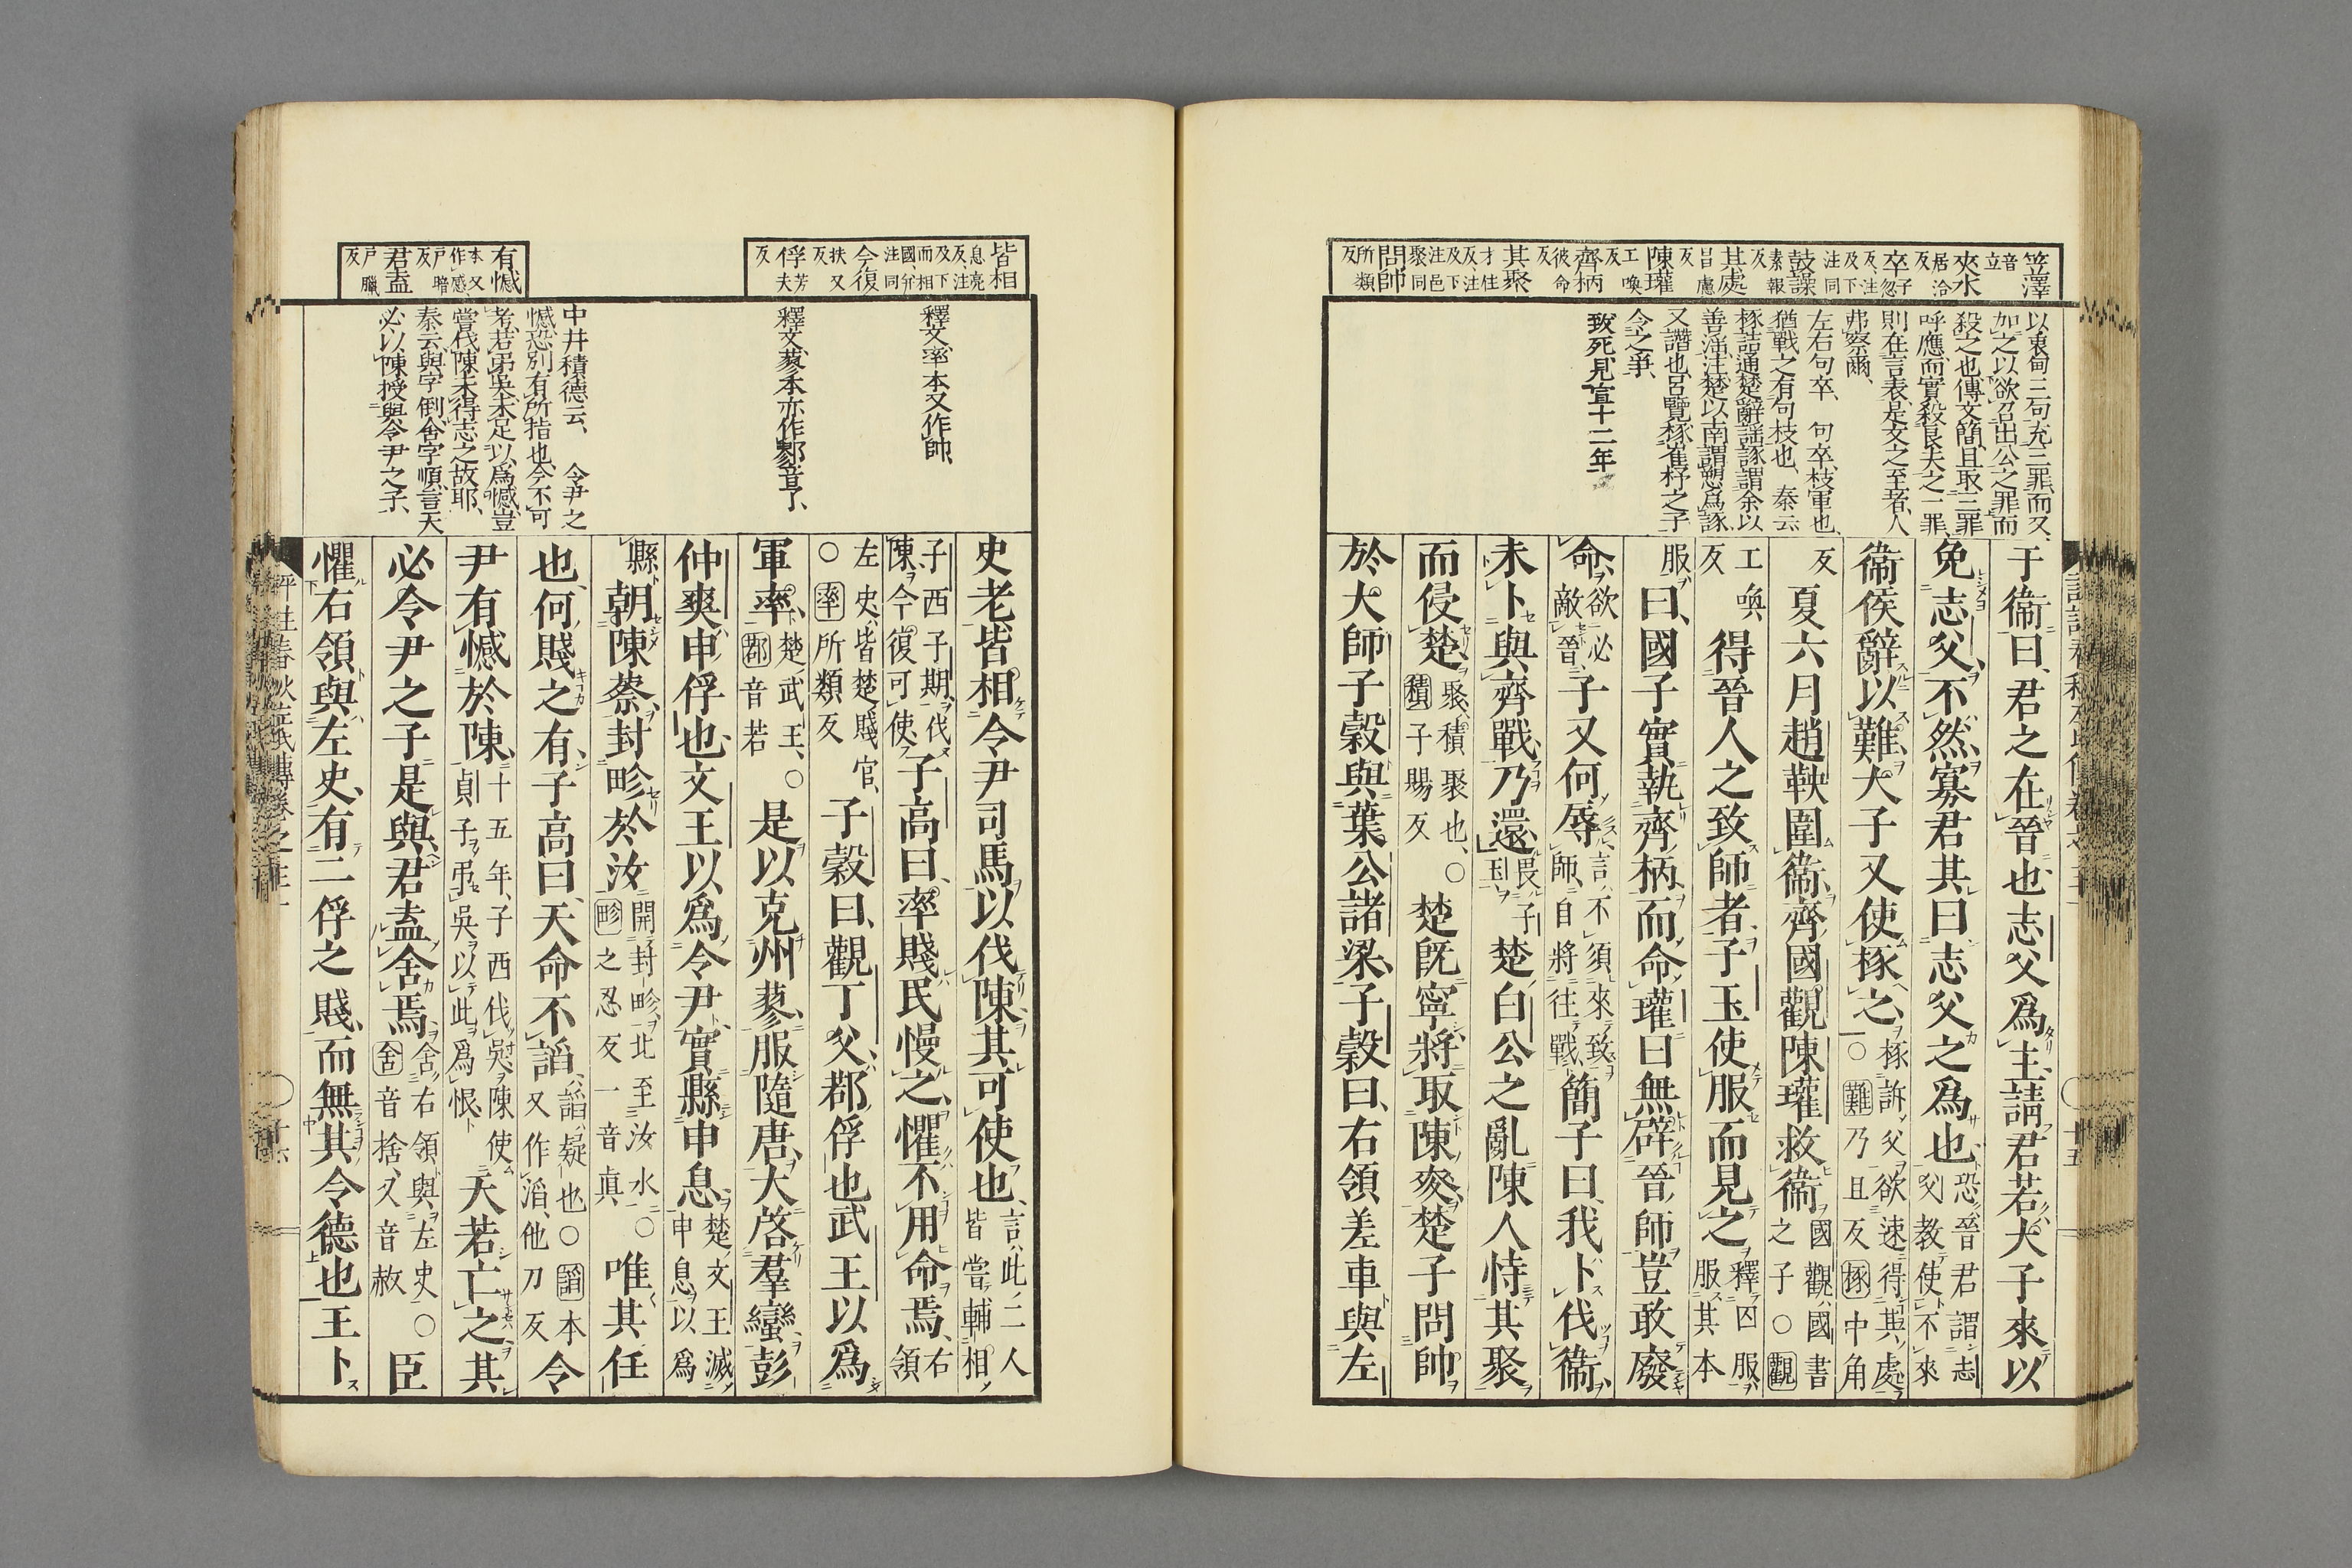 笠澤
音立
夾水
居洽反
卒子忽
反注及下注同
鼓譟
素報反
其處
呂慮反
陳瓘
工喚反
齊柄
彼命反
其聚
才住反注及下注邑聚同
問帥
所類反
以衷甸三句充三罪而又
加之以欲召出公之罪而
殺之也傳文簡且取三罪
呼應而實殺良夫之一罪
則在言表是文之至者人
弗察爾、
左右句卒、句卒枝軍也
猶戰之有句枝也、秦云
椓詰通楚辭謡諑謂余以
善淫注楚以南謂愬爲諑
又譖也呂覽椓崔杼之子
令之爭、
致死見宣十二年
于衞曰、君之在晉也、志父爲主、請君若大子來以
免志父、不然、寡君其曰、志父之爲也、恐晉君謂志父教使不來
衞侯辭以難、大子又使椓之、椓訴父欲速得其處○難乃旦反椓中角
反夏六月、趙鞅圍衞、齊國觀陳瓘救衞、國觀國書之子○觀
工喚反得晉人之致師者、子玉使服而見之、釋囚服服其本
服曰、國子實執齊柄、而命瓘曰、無辟晉師、豈敢廢
命、欲必敵晉子又何辱、言不須來致師自將往戰簡子曰、我卜伐衞、
未卜與齊戰、乃還、畏子玉楚白公之亂、陳人恃其聚
而侵楚、聚積聚也、○積子賜反楚旣寧、將取陳麥、楚子問帥
於大師子穀與葉公諸梁、子穀曰、右領差車與左
皆相
息亮反注及下而相國弁注同
令復
扶又反
俘芳夫反
有憾
本又作感戶暗反
君盍
戶臘反
釋文率本又作帥、
釋文蓼本亦作鄝音了、
中井積德云、令尹之
憾恐別有所指也今不可
考若弔吳未足以爲憾豈
嘗伐陳未得志之故耶、
秦云與字倒舍字順言天
必以陳授與令尹之子、
史老皆相令尹司馬以伐陳、其可使也、言此二人皆嘗輔相
子西子期伐陳今復可使子高曰、率賤民慢之、懼不用命焉、右領
左史皆楚賤官、○率所類反子穀曰、觀丁父、鄀俘也、武王以爲
軍率、楚武王、○鄀音若是以克州蓼、服隨唐、大啓羣蠻、彭
仲爽、申俘也、文王以爲令尹、實縣申息、楚文王滅申息以爲
縣朝陳蔡、封畛於汝、開封畛北至汝水○畛之忍反一音眞唯其任
也、何賤之有、子高曰、天命不謟、謟疑也○謟本又作滔他刀反令
尹有憾於陳、十五年子西伐吳陳使貞子弔吳以此爲恨天若亡之、其
必令尹之子是與、君盍舍焉、舍右領與左史○舍音捨又音赦臣
懼右領與左史有二俘之賤、而無其令德也、王卜